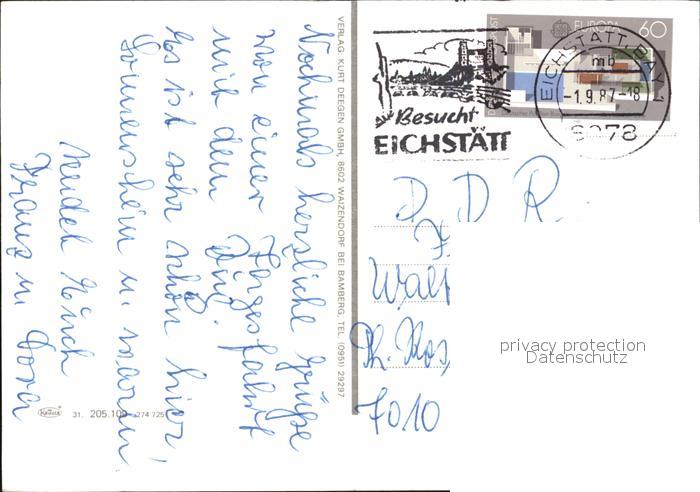 Nochmals herzliche Grüße
von einer Tagesfahrt
mit dem Zug.
Es ist sehr schön hier!
Sonnenschein u. warm
Meldet Euch
Franz u. Dora
VERLAG: KURT DEEGEN GMBH, 8602 WAIZENDORF BEI BAMBERG, TEL. (0951) 29297
31. 205.109 a274 725
EUROPA 60
EICHSTÄTT, BAY
mb
-1.9.87-18
8078
Besucht
EICHSTÄTT
D D R
Walt
Th.
7010
privacy protection
Datenschutz